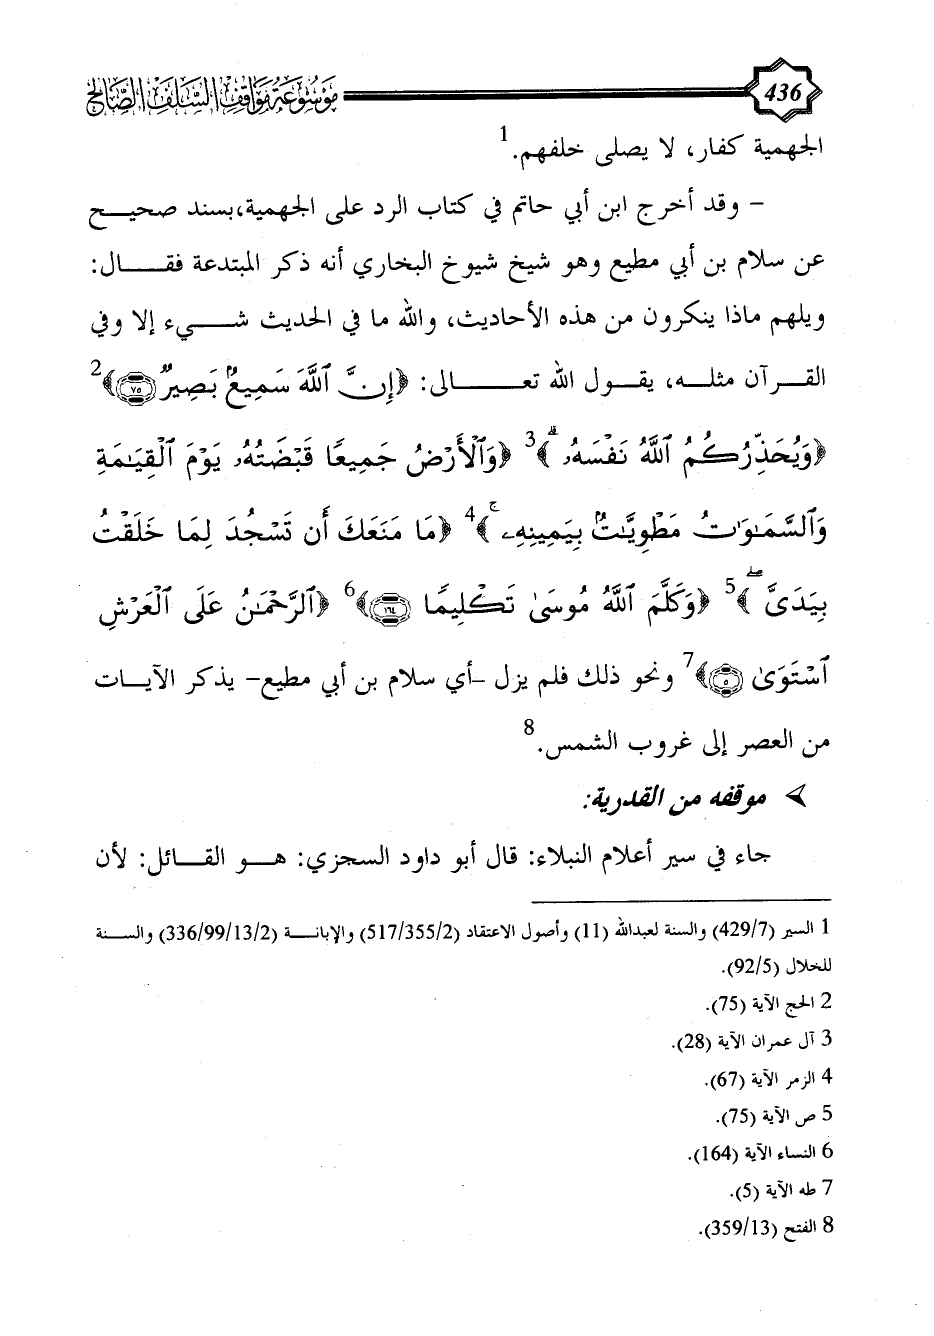 موسوعة مواقف السلف الصالح 436
الجهمية كفار، لا يصلى خلفهم.1
- وقد أخرج ابن أبي حاتم في كتاب الرد على الجهمية،بسند صحيح
عن سلام بن أبي مطيع وهو شيخ شيوخ البخاري أنه ذكر المبتدعة فقال:
ويلهم ماذا ينكرون من هذه الأحاديث، والله ما في الحديث شيء إلا وفي
القرآن مثله، يقول الله تعالى: ﴿إِنَّ ٱللَّهَ سَمِيعٌۢ بَصِيرٌ ۝٧٥﴾2
﴿وَيُحَذِّرُكُمُ ٱللَّهُ نَفْسَهُۥ ۗ﴾3 ﴿وَٱلْأَرْضُ جَمِيعًا قَبْضَتُهُۥ يَوْمَ ٱلْقِيَٰمَةِ
وَٱلسَّمَٰوَٰتُ مَطْوِيَّٰتٌۢ بِيَمِينِهِۦ ۚ﴾4 ﴿مَا مَنَعَكَ أَن تَسْجُدَ لِمَا خَلَقْتُ
بِيَدَىَّ ۖ﴾5 ﴿وَكَلَّمَ ٱللَّهُ مُوسَىٰ تَكْلِيمًا ۝١٦٤﴾6 ﴿ٱلرَّحْمَٰنُ عَلَى ٱلْعَرْشِ
ٱسْتَوَىٰ ۝٥﴾7 ونحو ذلك فلم يزل -أي سلام بن أبي مطيع- يذكر الآيات
من العصر إلى غروب الشمس.8
موقفه من القدرية:
جاء في سير أعلام النبلاء: قال أبو داود السجزي: هو القائل: لأن
1 السير (429/7) والسنة لعبدالله (11) وأصول الاعتقاد (517/355/2) والإبانة (336/99/13/2) والسنة
للخلال (92/5).
2 الحج الآية (75).
3 آل عمران الآية (28).
4 الزمر الآية (67).
5 ص الآية (75).
6 النساء الآية (164).
7 طه الآية (5).
8 الفتح (359/13).